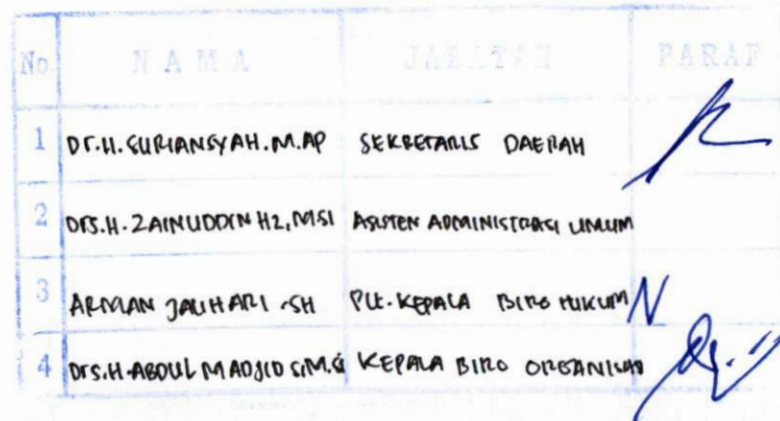 No. N A M A JABATAN PARAF
1 Dr.H.SURIANSYAH.M.AP SEKRETARIS DAERAH
2 Drs.H.ZAINUDDIN HZ,M.SI ASISTEN ADMINISTRASI UMUM
3 ARMAN JAUHARI .SH PLT.KEPALA BIRO HUKUM
4 Drs.H.ABDUL MADJID S,M.Si KEPALA BIRO ORGANISASI